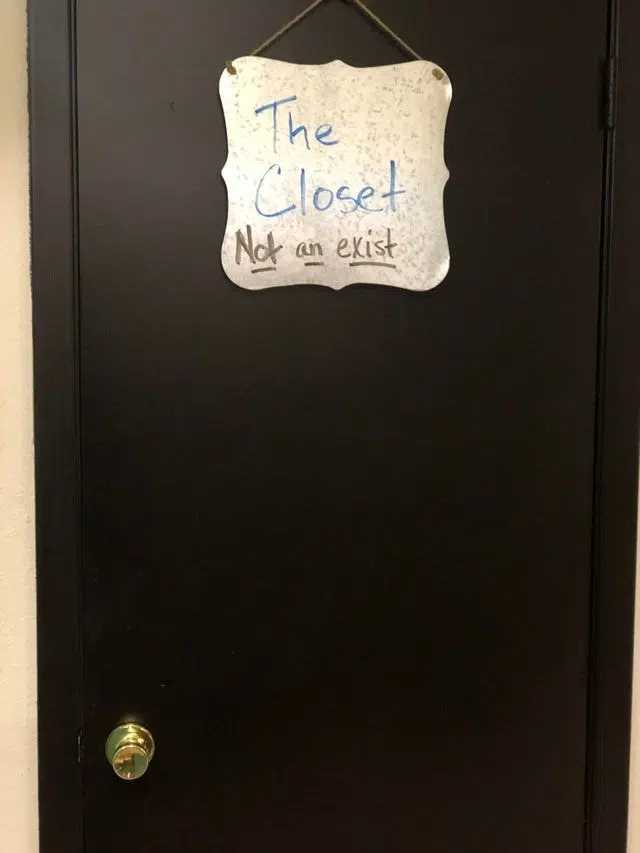 The
Closet
Not an exist